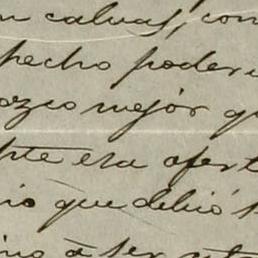 calvas, con
pecho poder
ozco mejór q
pte esa ofert
io que debió s
ino á ser